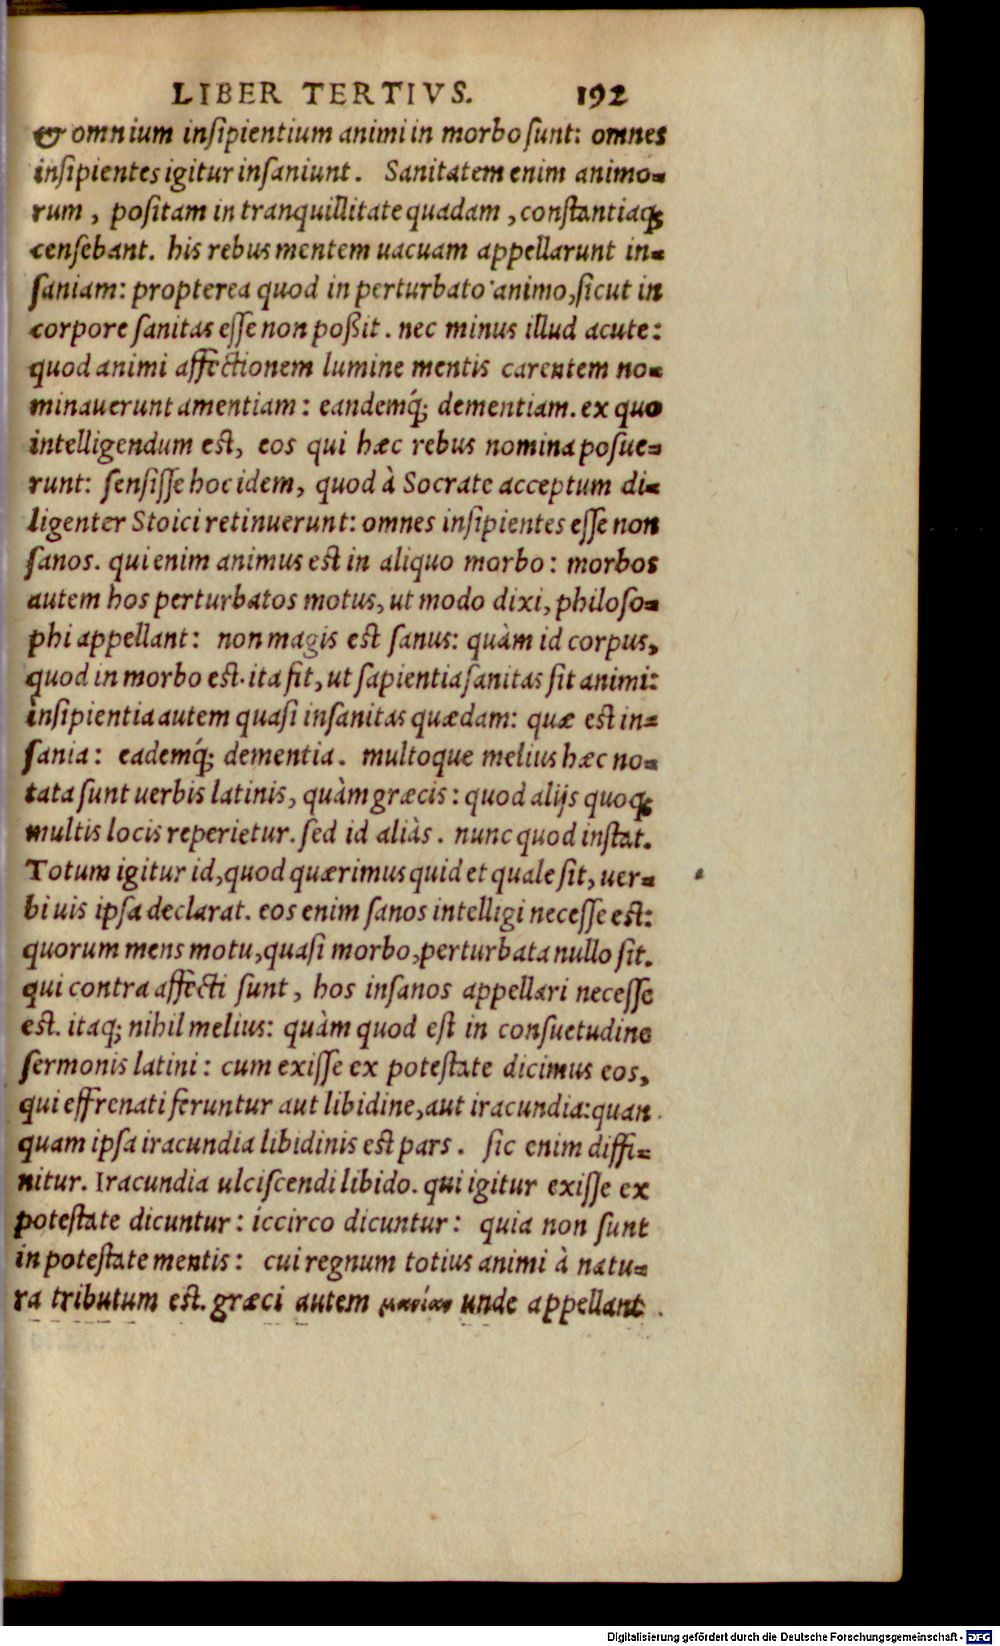 LIBER TERTIVS. 192
& omnium insipientium animi in morbo sunt: omnes
insipientes igitur insaniunt. Sanitatem enim animo-
rum, positam in tranquillitate quadam, constantiaq́;
censebant. his rebus mentem uacuam appellarunt in-
saniam: propterea quod in perturbato animo, sicut in
corpore sanitas esse non poßit. nec minus illud acute:
quod animi affectionem lumine mentis carentem no-
minauerunt amentiam: eandemq́; dementiam. ex quo
intelligendum est, eos qui hæc rebus nomina posue-
runt: sensisse hoc idem, quod à Socrate acceptum di-
ligenter Stoici retinuerunt: omnes insipientes esse non
sanos. qui enim animus est in aliquo morbo: morbos
autem hos perturbatos motus, ut modo dixi, philoso-
phi appellant: non magis est sanus: quàm id corpus,
quod in morbo est. ita fit, ut sapientia sanitas sit animi:
insipientia autem quasi insanitas quædam: quæ est in-
sania: eademq́; dementia. multoque melius hæc no-
tata sunt uerbis latinis, quàm græcis: quod alijs quoq;
multis locis reperietur. sed id aliàs. nunc quod instat.
Totum igitur id, quod quærimus quid et quale sit, uer-
bi uis ipsa declarat. eos enim sanos intelligi necesse est:
quorum mens motu, quasi morbo, perturbata nullo sit.
qui contra affecti sunt, hos insanos appellari necesse
est. itaq; nihil melius: quàm quod est in consuetudine
sermonis latini: cum exisse ex potestate dicimus eos,
qui effrenati feruntur aut libidine, aut iracundia: quan
quam ipsa iracundia libidinis est pars. sic enim diffi-
nitur. Iracundia ulciscendi libido. qui igitur exisse ex
potestate dicuntur: iccirco dicuntur: quia non sunt
in potestate mentis: cui regnum totius animi à natu-
ra tributum est. græci autem μανίαν unde appellant
Digitalisierung gefördert durch die Deutsche Forschungsgemeinschaft - DFG